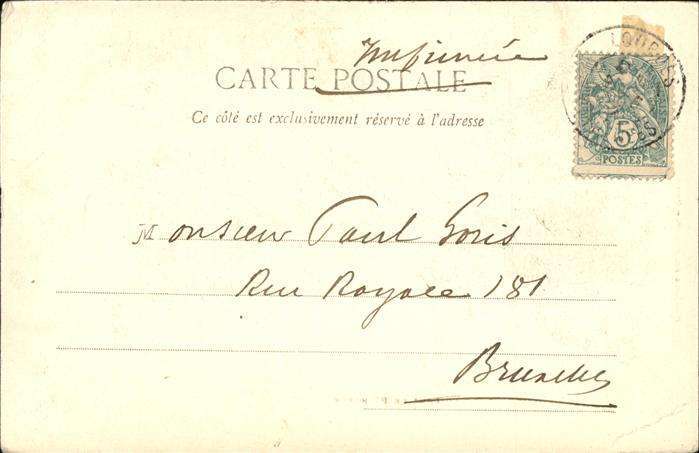 Imprimée
CARTE POSTALE
Ce côté est exclusivement réservé à l'adresse
LOURDES
5c
POSTES
Monsieur Paul Goris
Rue Royale 181
Bruxelles